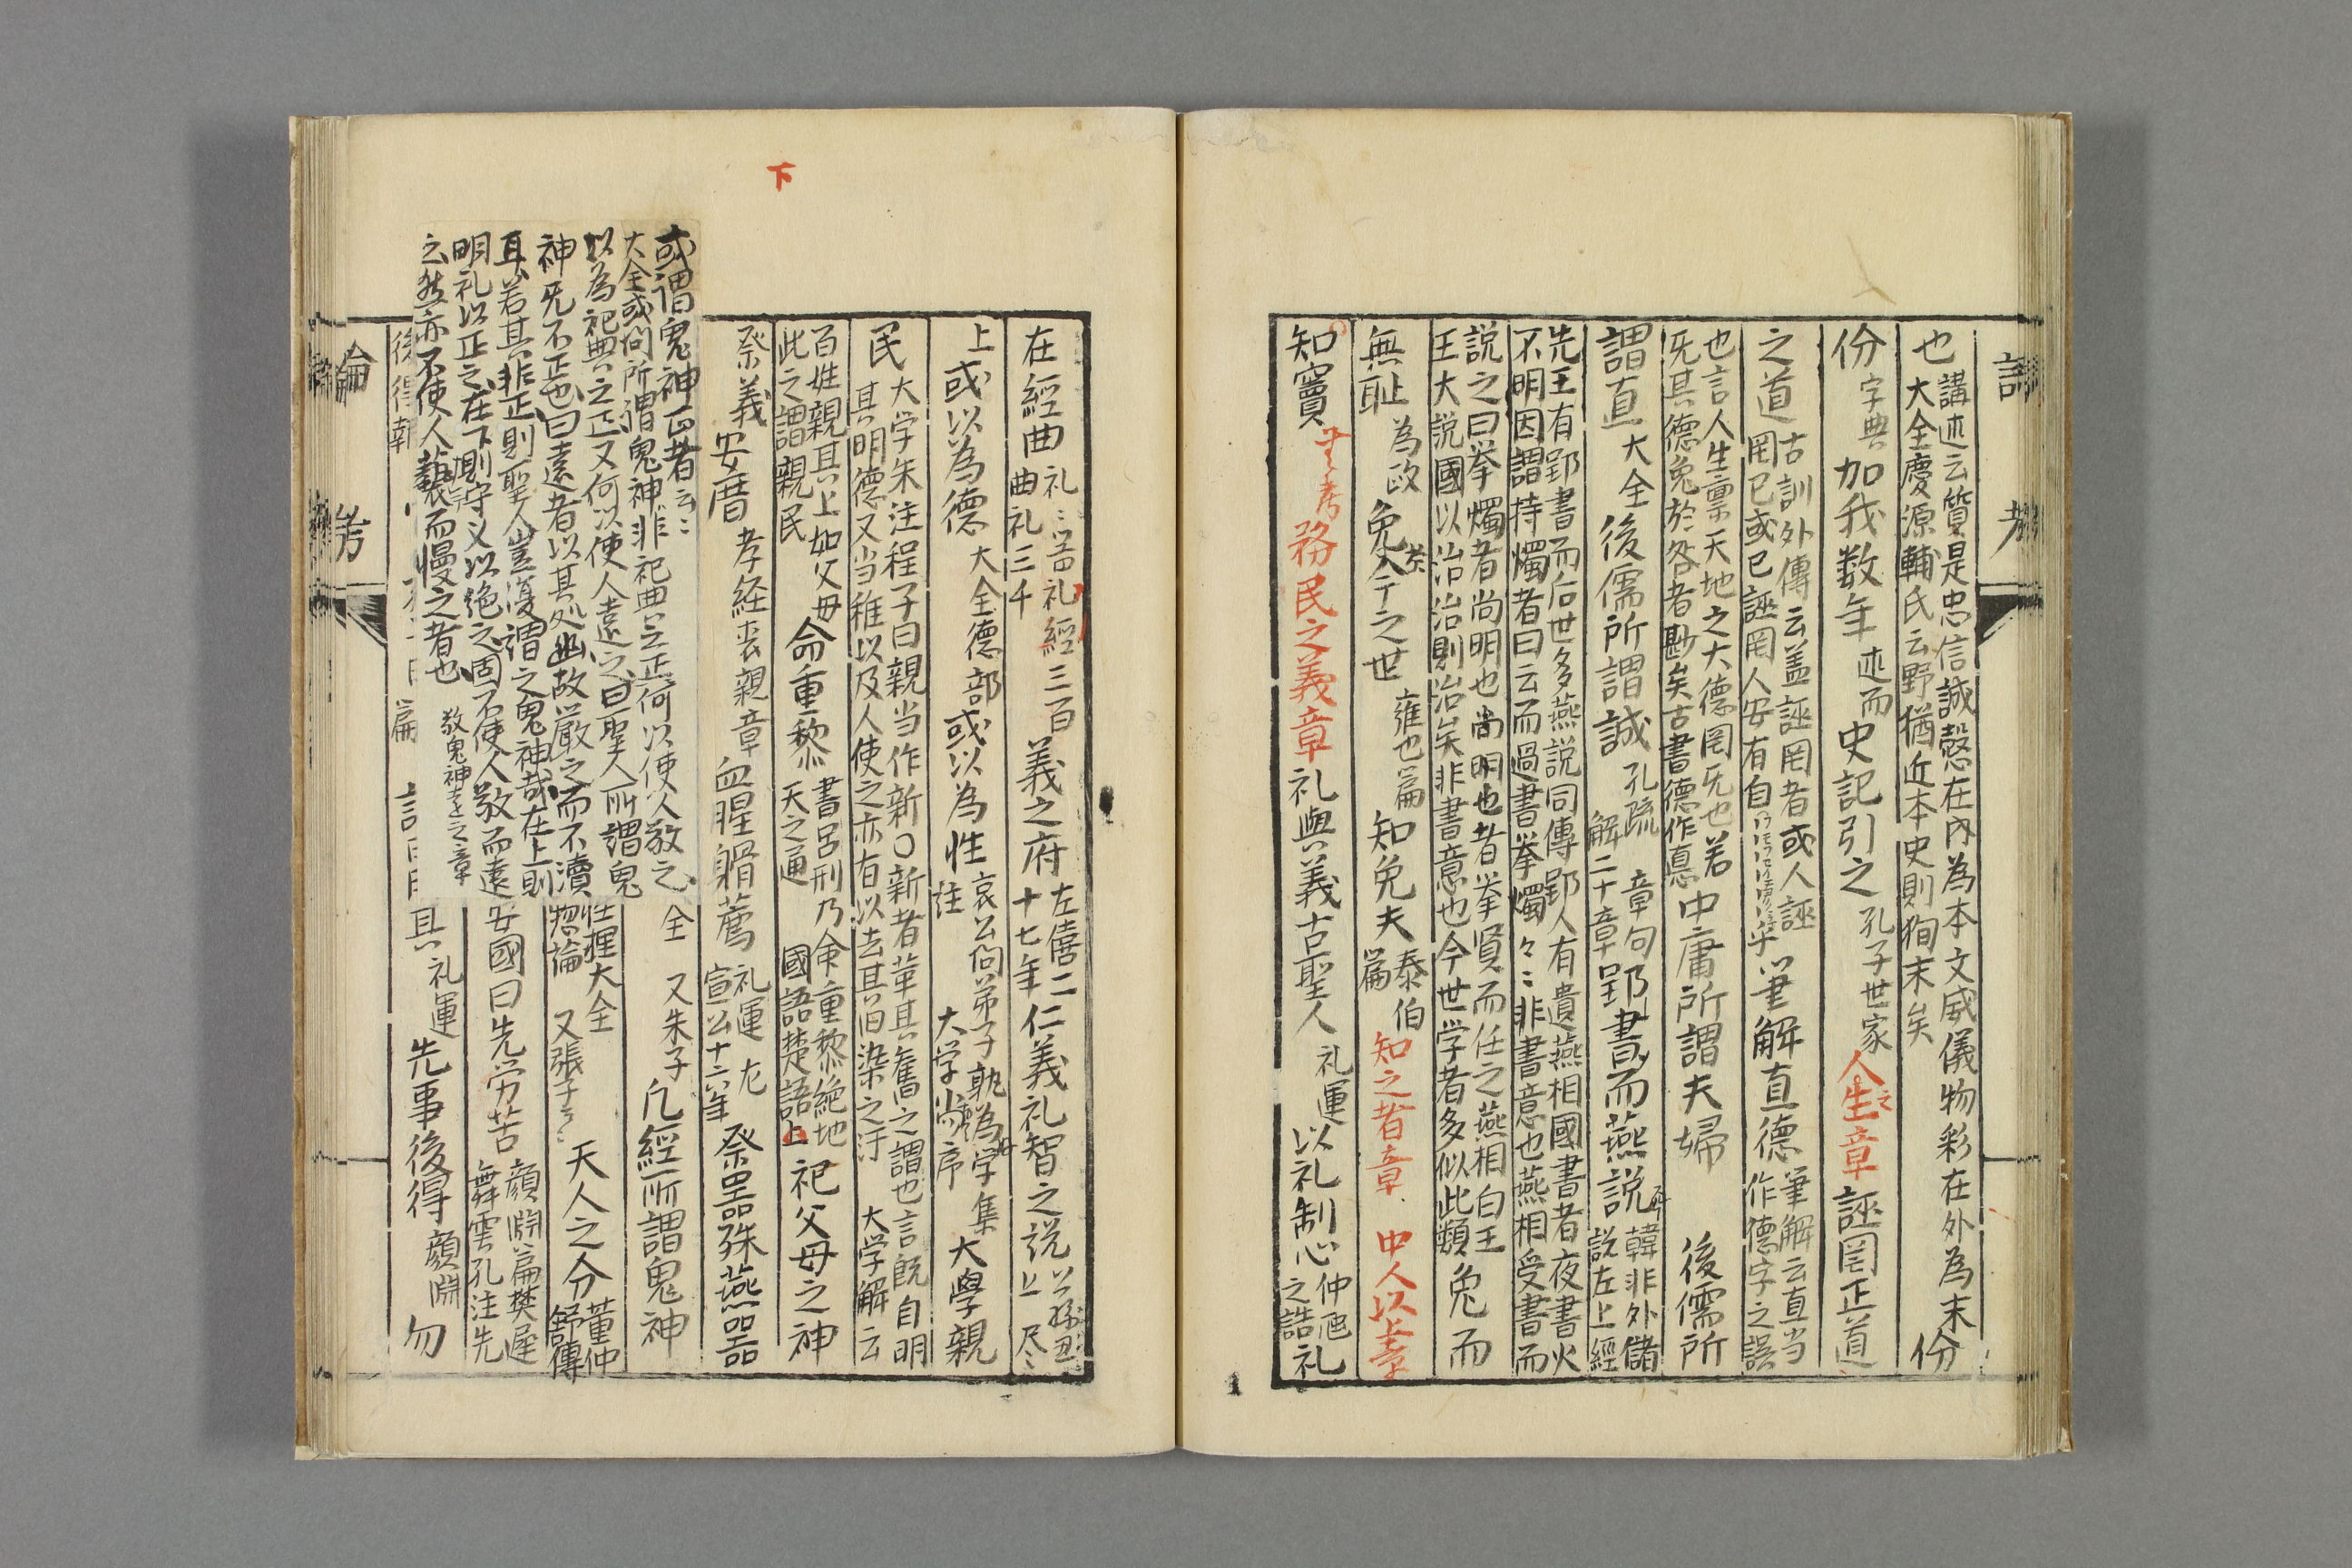 也 講述云質是忠信誠慤在內為本文威儀物彩在外為末 份
大全慶源輔氏云野猶近本史則徇末矣
份 字典 加我数年 述而 史記引之 孔子世家 人生之章 誣罔正道
之道 古訓外傳云盖誣罔者或人誣
罔已或已誣罔人安有自 筆解直德 筆解云直当
作德字之誤
也言人生稟天地之大德罔旡也若
旡其德免於咎者尠矣古書德作悳 中庸所謂夫婦 後儒所
謂直 大全 後儒所謂誠 孔疏 章句
解二十章 郢書而燕說 韓非外儲
説左上経
先王有郢書而后世多燕説同傳郢人有遺燕相國書者夜書火
不明因謂持燭者曰云而過書挙燭々ミ非書意也燕相受書而
說之曰挙燭者尚明也尚明也者挙賢而任之燕相白王
王大説國以治治則治矣非書意也今世学者多似此類 免而
無耻 為政 免於今之世 雍也篇 知免夫 泰伯
篇 知之者章 中人以上章
知竇 務民之義章 礼與義古聖人 礼運 以礼制心 仲虺
之誥 礼
下
在經曲 礼ミ器礼經三百
曲礼三千 義之府 左僖二
十七年 仁義礼智之説
上 或以為德 大全德部 或以為性 哀公問弟子孰為好学集
註 大学尚序 大學親
民 大学朱注程子曰親当作新〇新者革其舊之謂也言既自明
其明德又当推以及人使之亦有以去其旧染之汙 大学解云
百姓親其上如父母
此之謂親民 命重黎 書呂刑乃命重黎絶地
天之通 國語楚語上 祀父母之神
祭義 安厝 孝経喪親章 血腥膋薦 礼運 左
宣公十六年 祭器殊燕器
或謂鬼神正者云ミ
大全或问所謂鬼神非祀典之正何以使人敬之
以為祀典之正又何以使人遠之曰聖人所謂鬼
神旡不正也曰遠者以其処幽故嚴之而不瀆
耳若其非正則聖人豈復謂之鬼神哉在上則
明礼以正之在下則守义以絶之固不使人敬而遠
之然亦不使人褻而慢之者也 敬鬼神遠之章
全 又朱子 凡經所謂鬼神
性理大全
惣論 又張子 天人之分 董仲
舒傳
安國曰先労苦 顔淵篇樊遅
舞雩孔注先
礼運 先事後得 顔淵 勿
論 考